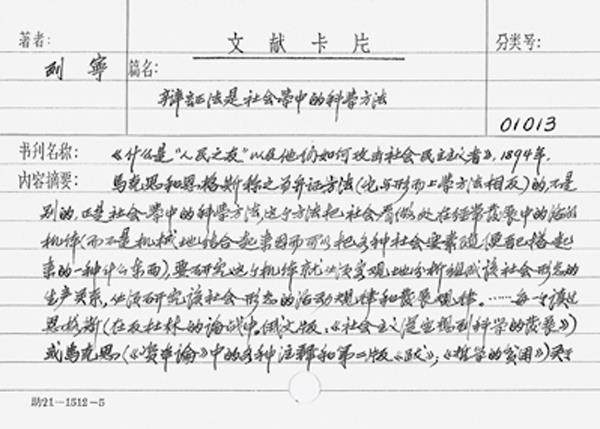 文献卡片
著者:
分类号:
列寧
篇名:
辩证法是社会学中的科学方法
01013
书刊名称: 《什么是“人民之友”以及他们如何攻击社会民主主义者》, 1894年.
内容摘要: 马克思和恩格斯称之为辩证方法(它与形而上学方法相反)的,不是
别的,正是社会学中的科学方法,这个方法把社会看做处在经常发展中的活的
机体(而不是机械地结合起来因而可以把各种社会要素随便配搭起
来的一种什么东西),要研究这个机体就必须客观地分析组成该社会形态的
生产关系,必须研究该社会形态的活动规律和发展规律。……每个读过
恩格斯(在反杜林的论战中,俄文版:《社会主义从空想到科学的发展》)
或马克思(《资本论》中的各种注释和第二版《跋》;《哲学的贫困》)关于
助21—1512—5